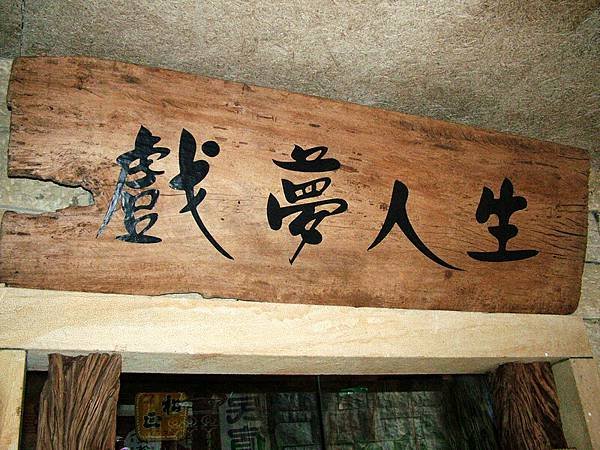 戲夢人生